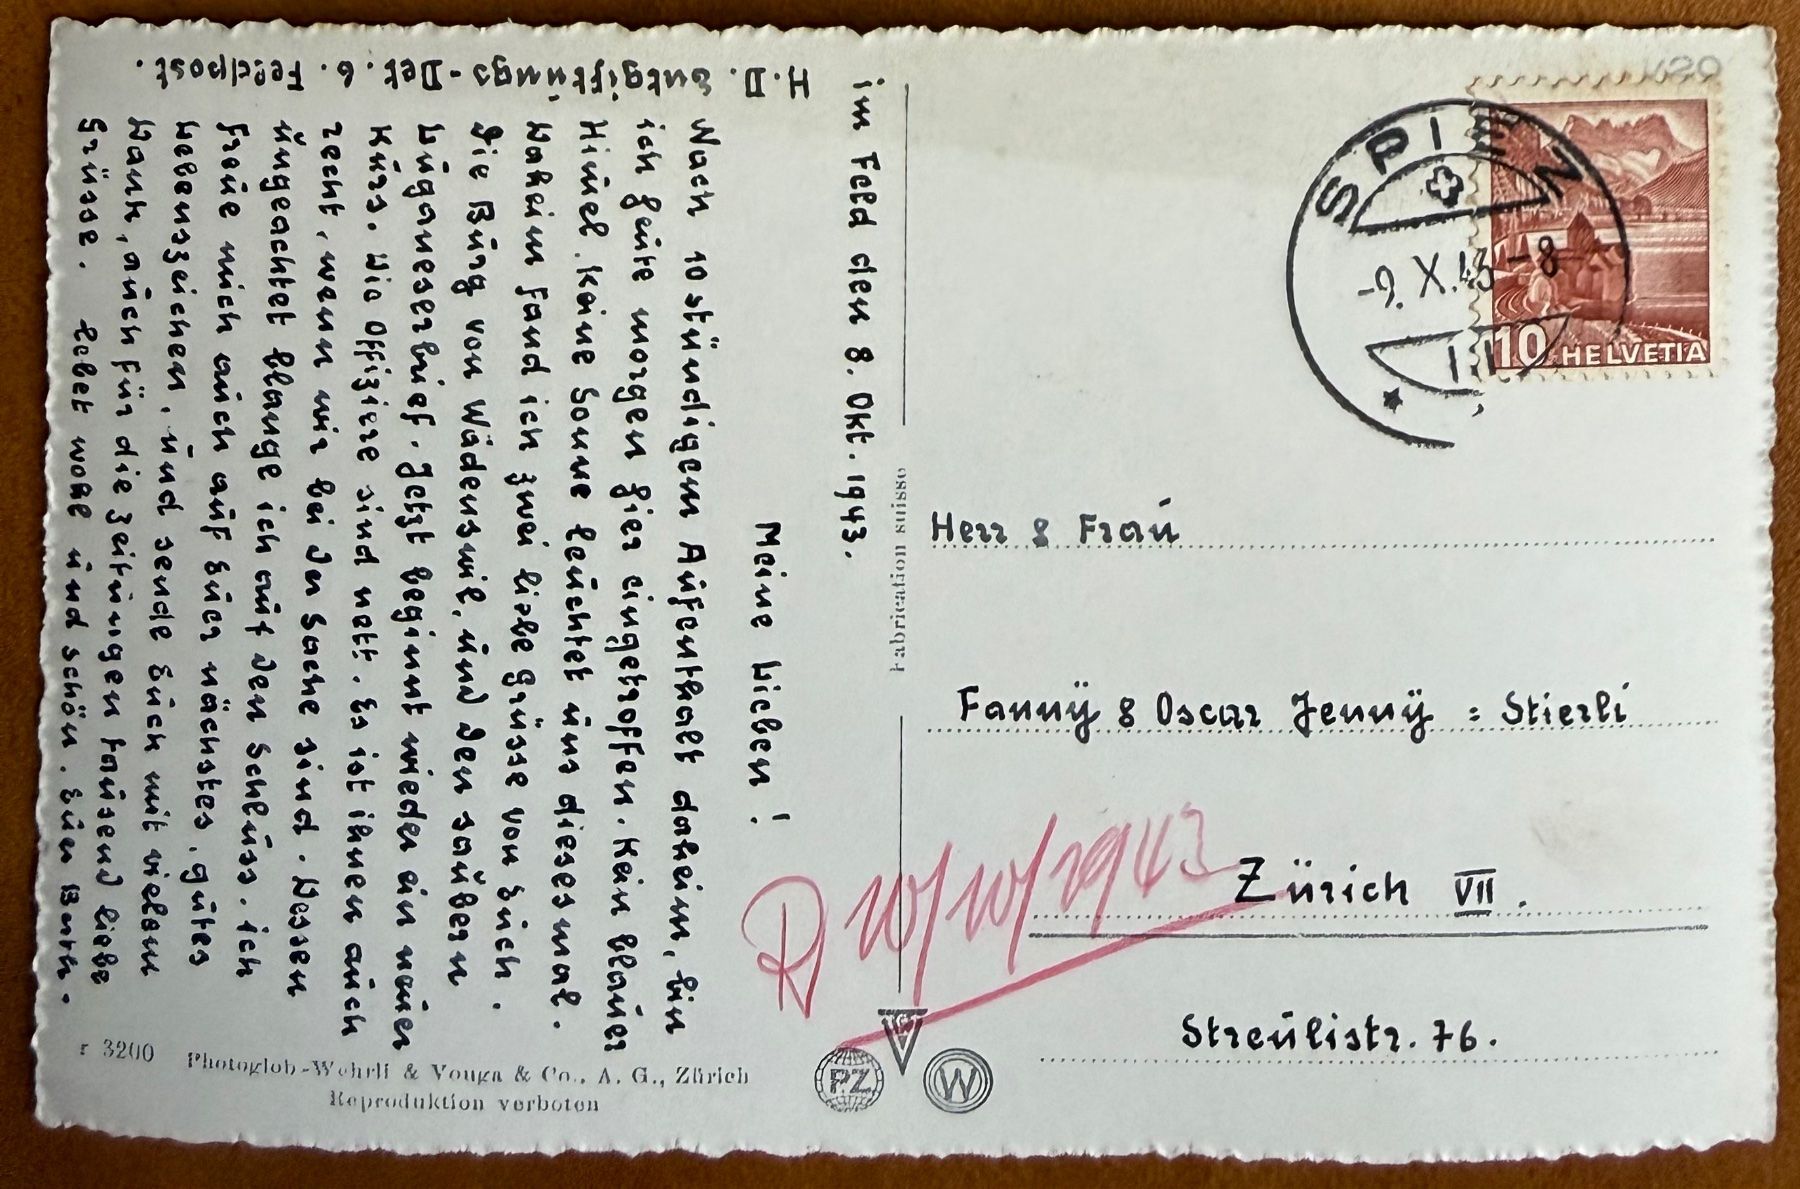 im Feld den 8. Okt. 1943.
Meine Lieben!
Nach 10 stündigem Aufenthalt daheim, bin
ich heute morgen hier eingetroffen. Kein blauer
Himmel. Keine Sonne leuchtet uns diesesmal.
Daheim fand ich zwei liebe Grüsse von Euch.
Die Burg von Wädenswil, und den saubern
Luganeserbrief. Jetzt beginnt wieder ein neuer
Kurs. Die Offiziere sind nett. Es ist ihnen auch
recht, wenn wir bei der Sache sind. Dessen
ungeachtet blange ich auf den Schluss. Ich
freue mich auch auf Euer nächstes, gutes
Lebenszeichen, und sende Euch mit vielem
Dank, auch für die Zeitungen tausend liebe
Grüsse. Lebet wohl und schön. Euer
H.D. Entgiftungs-Det. 6. Feldpost.
Fabrication suisse
r 3200
Photoglob-Wehrli & Vouga & Co., A. G., Zürich
Reproduktion verboten
PZ
W
SPIEZ
-9. X. 43 - 8
10 HELVETIA
Herr & Frau
Fanny & Oscar Jenny = Stierli
Zürich VII.
Streulistr. 76.
R 10/10/1943